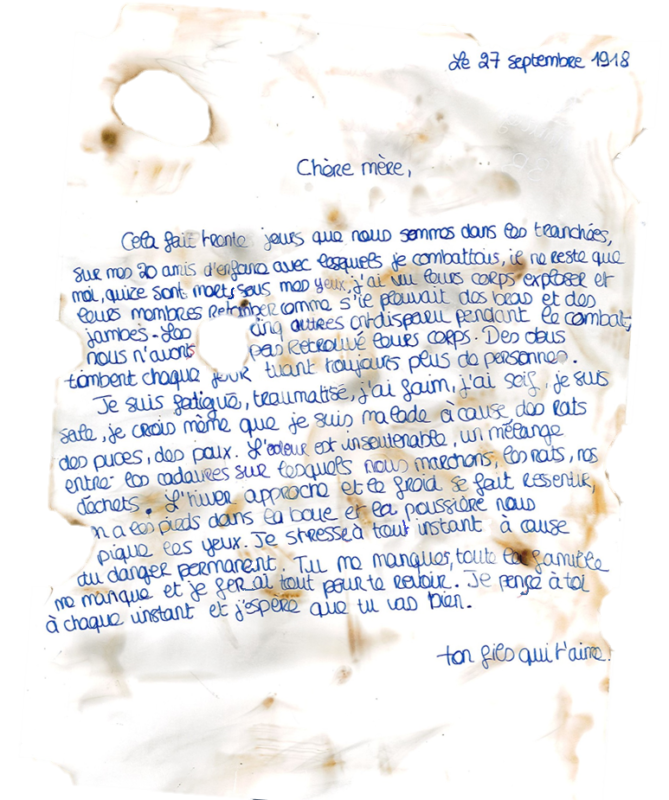 Le 27 septembre 1918
Chère mère,
Cela fait trente jours que nous sommes dans les tranchées,
sur mes 20 amis d'enfance avec lesquels je combattais, il ne reste que
moi, quize sont morts sous mes yeux, j'ai vu leurs corps exploser et
leurs membres retomber comme s'il pleuvait des bras et des
jambes. Les cinq autres ont disparu pendant le combat,
nous n'avons pas retrouvé leurs corps. Des obus
tombent chaque jour tuant toujours plus de personnes.
Je suis fatigué, traumatisé, j'ai faim, j'ai soif, je suis
sale, je crois même que je suis malade à cause des rats
des puces, des poux. L'odeur est insoutenable, un mélange
entre les cadavres sur lesquels nous marchons, les rats, nos
déchets. L'hiver approche et le froid se fait ressentir,
n a les pieds dans la boue et la poussière nous
pique les yeux. Je stresse à tout instant à cause
du danger permanent. Tu me manques, toute la famille
me manque et je ferai tout pour te revoir. Je pense à toi
à chaque instant et j'espère que tu vas bien.
ton fils qui t'aime.